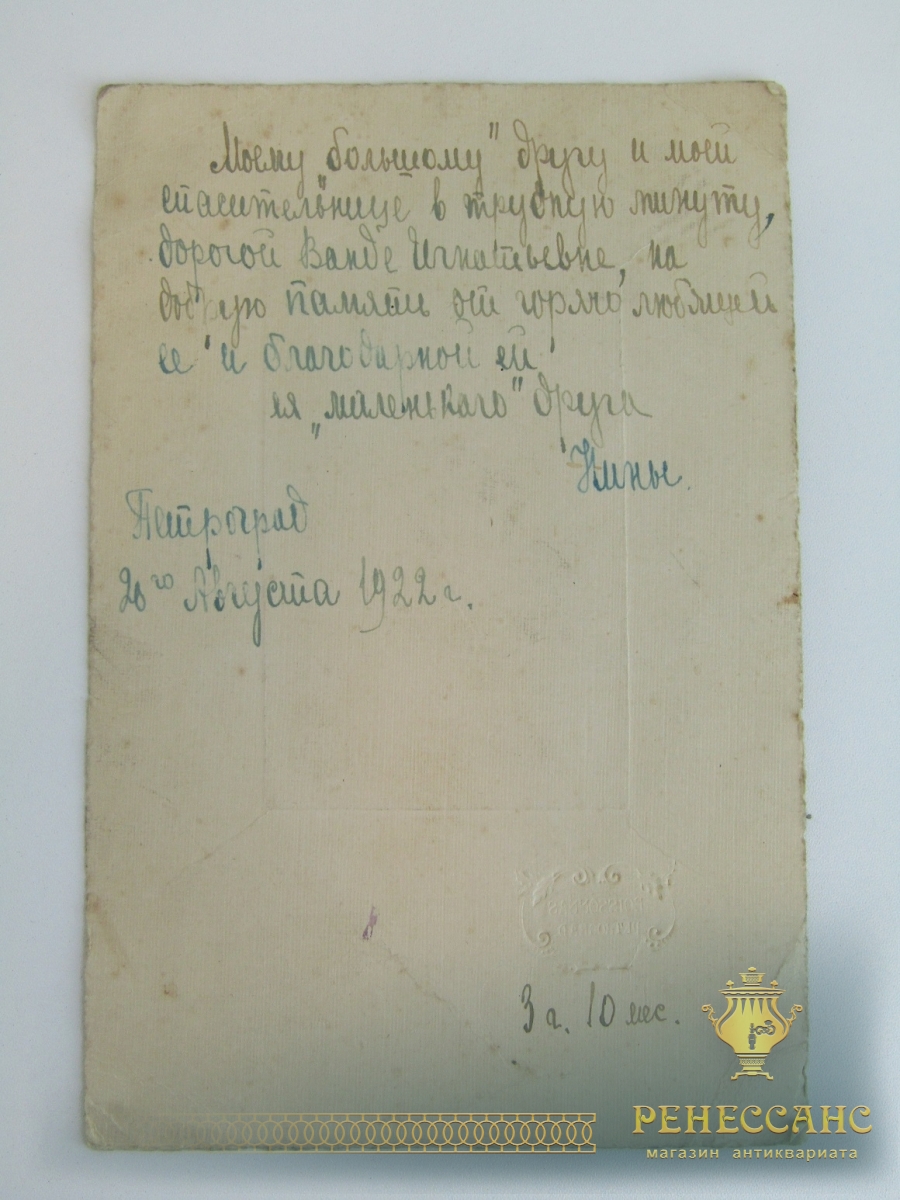 Моему „большому" другу и моей
спасительнице в трудную минуту,
дорогой Ванде Игнатьевне, на
добрую память от горячо любящей
ее и благодарной ей
ея „маленькаго" друга
Нины.
Петроград
20го Августа 1922 г.
3 г. 10 мес.
РЕНЕССАНС
магазин антиквариата